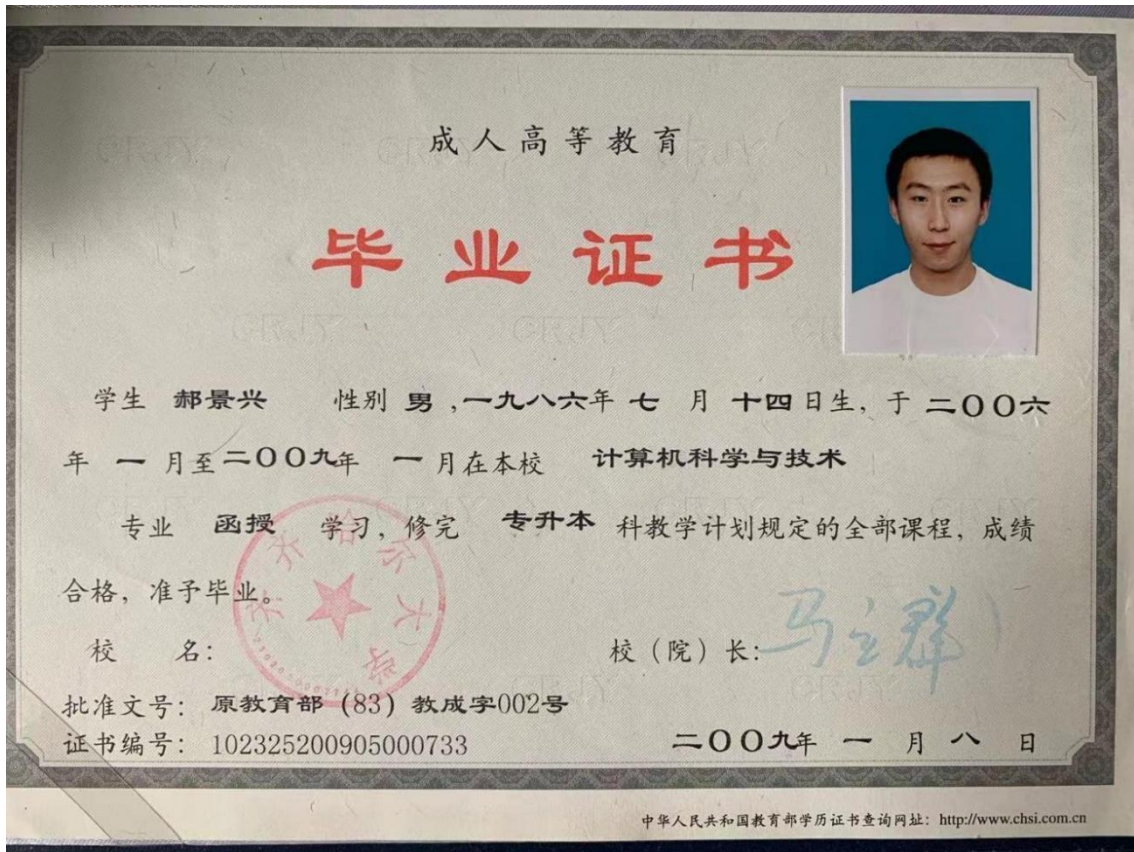 成人高等教育
毕业证书
学生 郝景兴 性别 男 ,一九八六年 七 月 十四日生，于 二〇〇六
年 一 月至二〇〇九年 一 月在本校 计算机科学与技术
专业 函授 学习，修完 专升本 科教学计划规定的全部课程，成绩
合格，准予毕业。
齐齐哈尔大学
校 名： 校（院）长：马立群
批准文号： 原教育部（83）教成字002号
证书编号： 102325200905000733 二〇〇九年 一 月 八 日
中华人民共和国教育部学历证书查询网址：http://www.chsi.com.cn